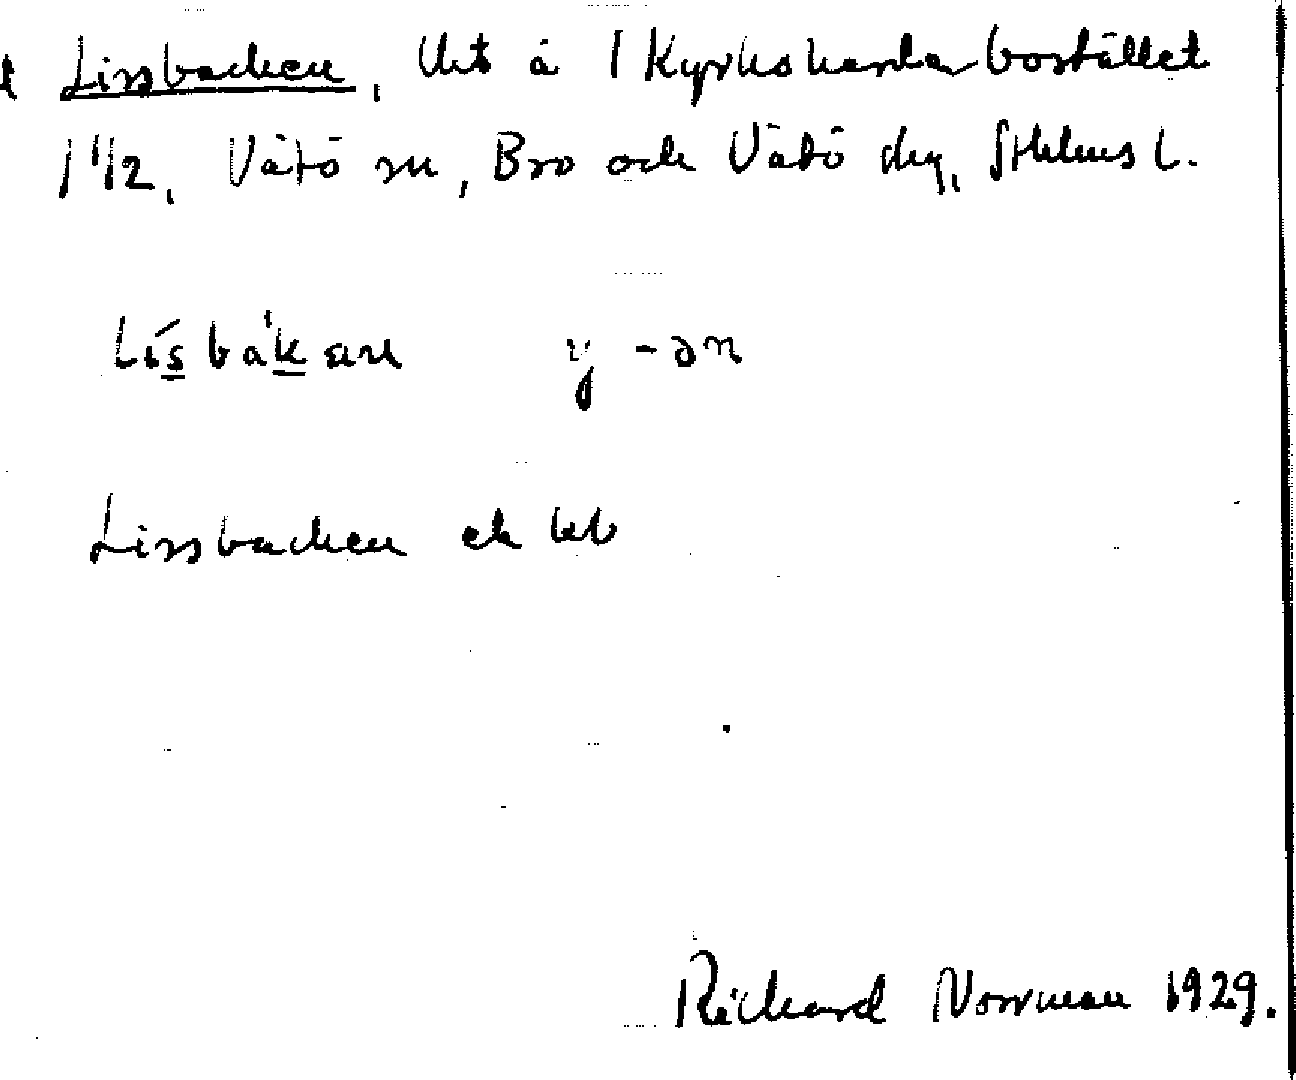 Lissbacken, Uht å 1 Kyrkoherdabostället
1 1/2, Vätö sn, Bro och Vätö skg, Sthlms l.
Lísbákan y -ən
Lissbacken ek kb
Rickard Norrman 1929.